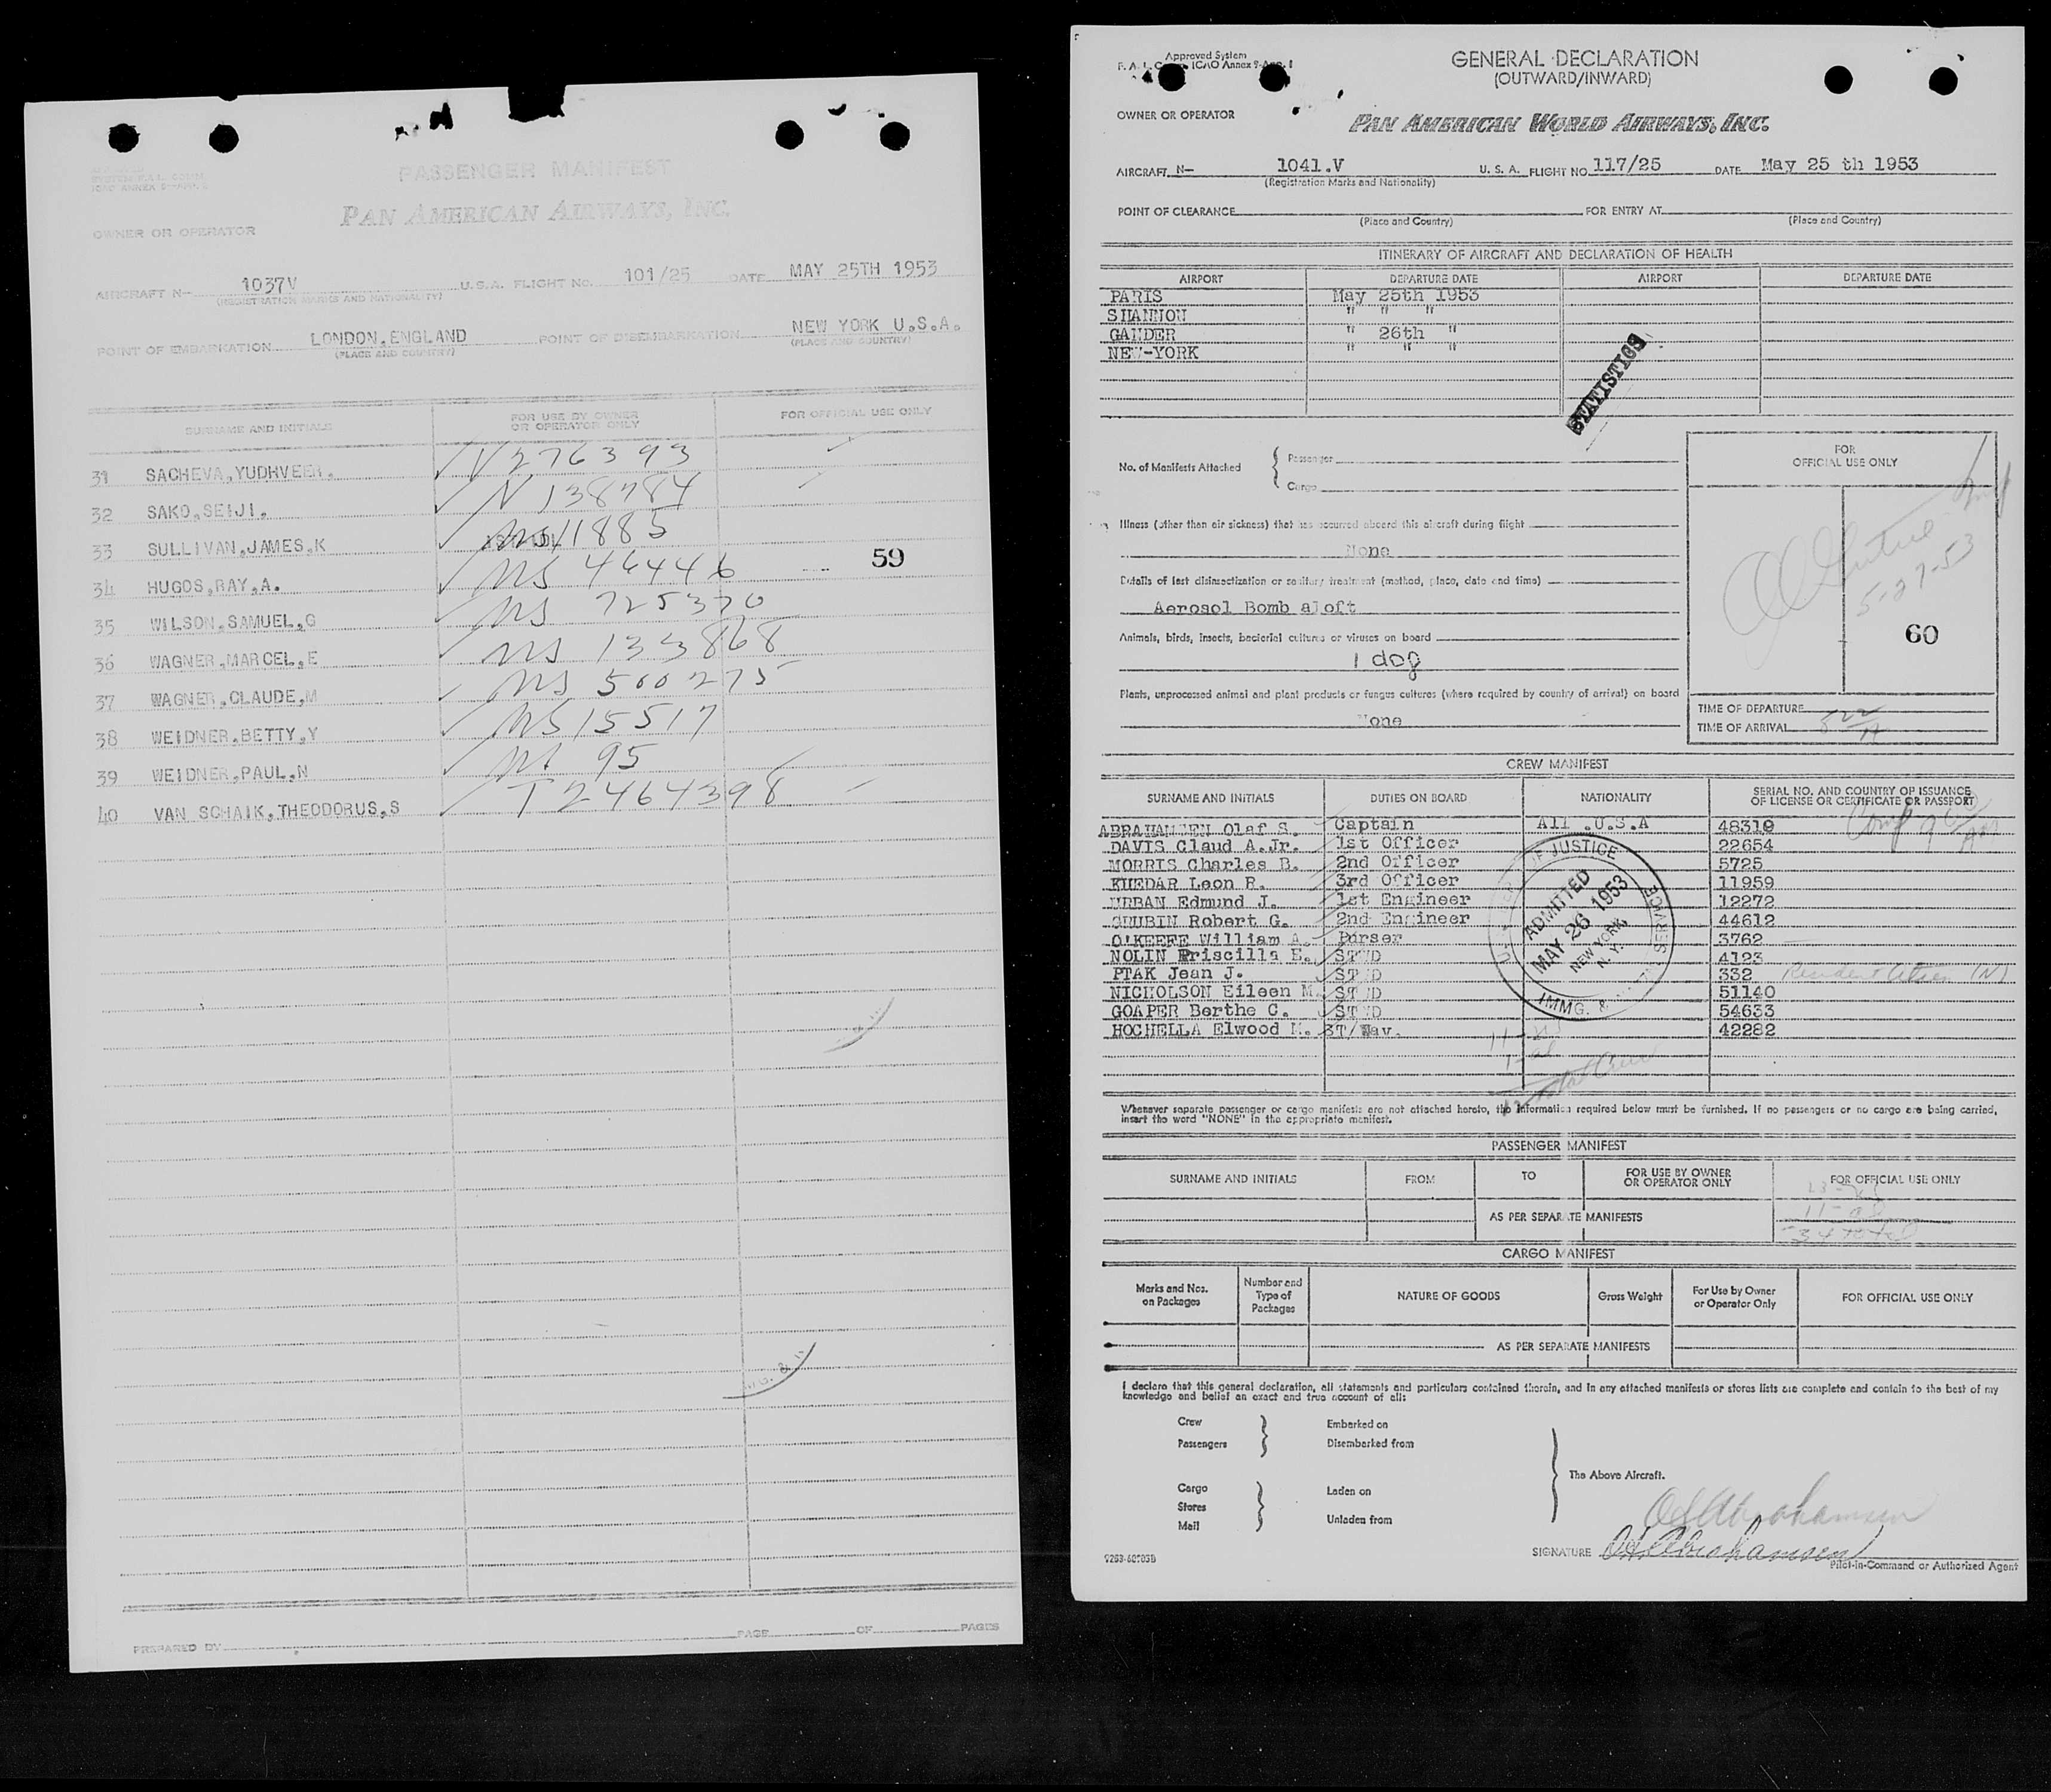 PASSENGER MANIFEST
PAN AMERICAN AIRWAYS, INC.
OWNER OR OPERATOR
AIRCRAFT N- 1037V U.S.A. FLIGHT No. 101/25 DATE MAY 25TH 1953
(REGISTRATION MARKS AND NATIONALITY)
POINT OF EMBARKATION LONDON,ENGLAND POINT OF DISEMBARKATION NEW YORK U.S.A.
(PLACE AND COUNTRY) (PLACE AND COUNTRY)
SURNAME AND INITIALS FOR USE BY OWNER OR OPERATOR ONLY FOR OFFICIAL USE ONLY
31 SACHEVA,YUDHVEER. V276393
32 SAKO,SEIJI. N 138784
33 SULLIVAN,JAMES,K 11885
34 HUGOS,RAY,A. NS 46446
59
35 WILSON,SAMUEL,G NS 725370
36 WAGNER,MARCEL,E NS 133868
37 WAGNER,CLAUDE,M NS 500275
38 WEIDNER,BETTY,Y NS 15517
39 WEIDNER,PAUL,N 95
40 VAN SCHAIK,THEODORUS,S T2464398
PREPARED BY PAGE OF PAGES
Approved System
F. A. L. Com. ICAO Annex 9-App. 1
GENERAL DECLARATION
(OUTWARD/INWARD)
OWNER OR OPERATOR PAN AMERICAN WORLD AIRWAYS, INC.
AIRCRAFT N- 1041.V U. S. A. FLIGHT NO. 117/25 DATE May 25 th 1953
(Registration Marks and Nationality)
POINT OF CLEARANCE FOR ENTRY AT
(Place and Country) (Place and Country)
ITINERARY OF AIRCRAFT AND DECLARATION OF HEALTH
AIRPORT DEPARTURE DATE AIRPORT DEPARTURE DATE
PARIS May 25th 1953
SHANNON " " "
GANDER " 26th "
NEW-YORK " " "
STATISTICS
No. of Manifests Attached { Passenger
Cargo
FOR OFFICIAL USE ONLY
Illness (other than air sickness) that has occurred aboard this aircraft during flight
None
5-27-53
Details of last disinsectization or sanitary treatment (method, place, date and time)
Aerosol Bomb aloft
60
Animals, birds, insects, bacterial cultures or viruses on board
1 dog
Plants, unprocessed animal and plant products or fungus cultures (where required by country of arrival) on board
None
TIME OF DEPARTURE
TIME OF ARRIVAL
CREW MANIFEST
SURNAME AND INITIALS DUTIES ON BOARD NATIONALITY SERIAL NO. AND COUNTRY OF ISSUANCE OF LICENSE OR CERTIFICATE OR PASSPORT
ABRAHAMSEN Olaf S. Captain All .U.S.A 48319
DAVIS Claud A.Jr. 1st Officer 22654
MORRIS Charles B. 2nd Officer 5725
KUEDAR Leon R. 3rd Officer 11959
URBAN Edmund J. 1st Engineer 12272
GRUBIN Robert G. 2nd Engineer 44612
O'KEEFE William A. Purser 3762
NOLIN Priscilla E. STWD 4123
PTAK Jean J. STWD 332 Resident Alien (N)
NICHOLSON Eileen M. STWD 51140
GOAPER Berthe C. STWD 54633
HOCHELLA Elwood M. ST/Nav. 42282
OF JUSTICE
ADMITTED
MAY 26 1953
NEW YORK, N. Y.
IMMG. &
SERVICE
Whenever separate passenger or cargo manifests are not attached hereto, the information required below must be furnished. If no passengers or no cargo are being carried,
insert the word "NONE" in the appropriate manifest.
PASSENGER MANIFEST
SURNAME AND INITIALS FROM TO FOR USE BY OWNER OR OPERATOR ONLY FOR OFFICIAL USE ONLY
AS PER SEPARATE MANIFESTS
34 total
CARGO MANIFEST
Marks and Nos. on Packages Number and Type of Packages NATURE OF GOODS Gross Weight For Use by Owner or Operator Only FOR OFFICIAL USE ONLY
AS PER SEPARATE MANIFESTS
I declare that this general declaration, all statements and particulars contained therein, and in any attached manifests or stores lists are complete and contain to the best of my
knowledge and belief an exact and true account of all:
Crew Embarked on
Passengers Disembarked from
The Above Aircraft.
Cargo Laden on
Stores
Mail Unladen from
OSAbrahamsen
SIGNATURE OSAbrahamsen
Pilot-in-Command or Authorized Agent